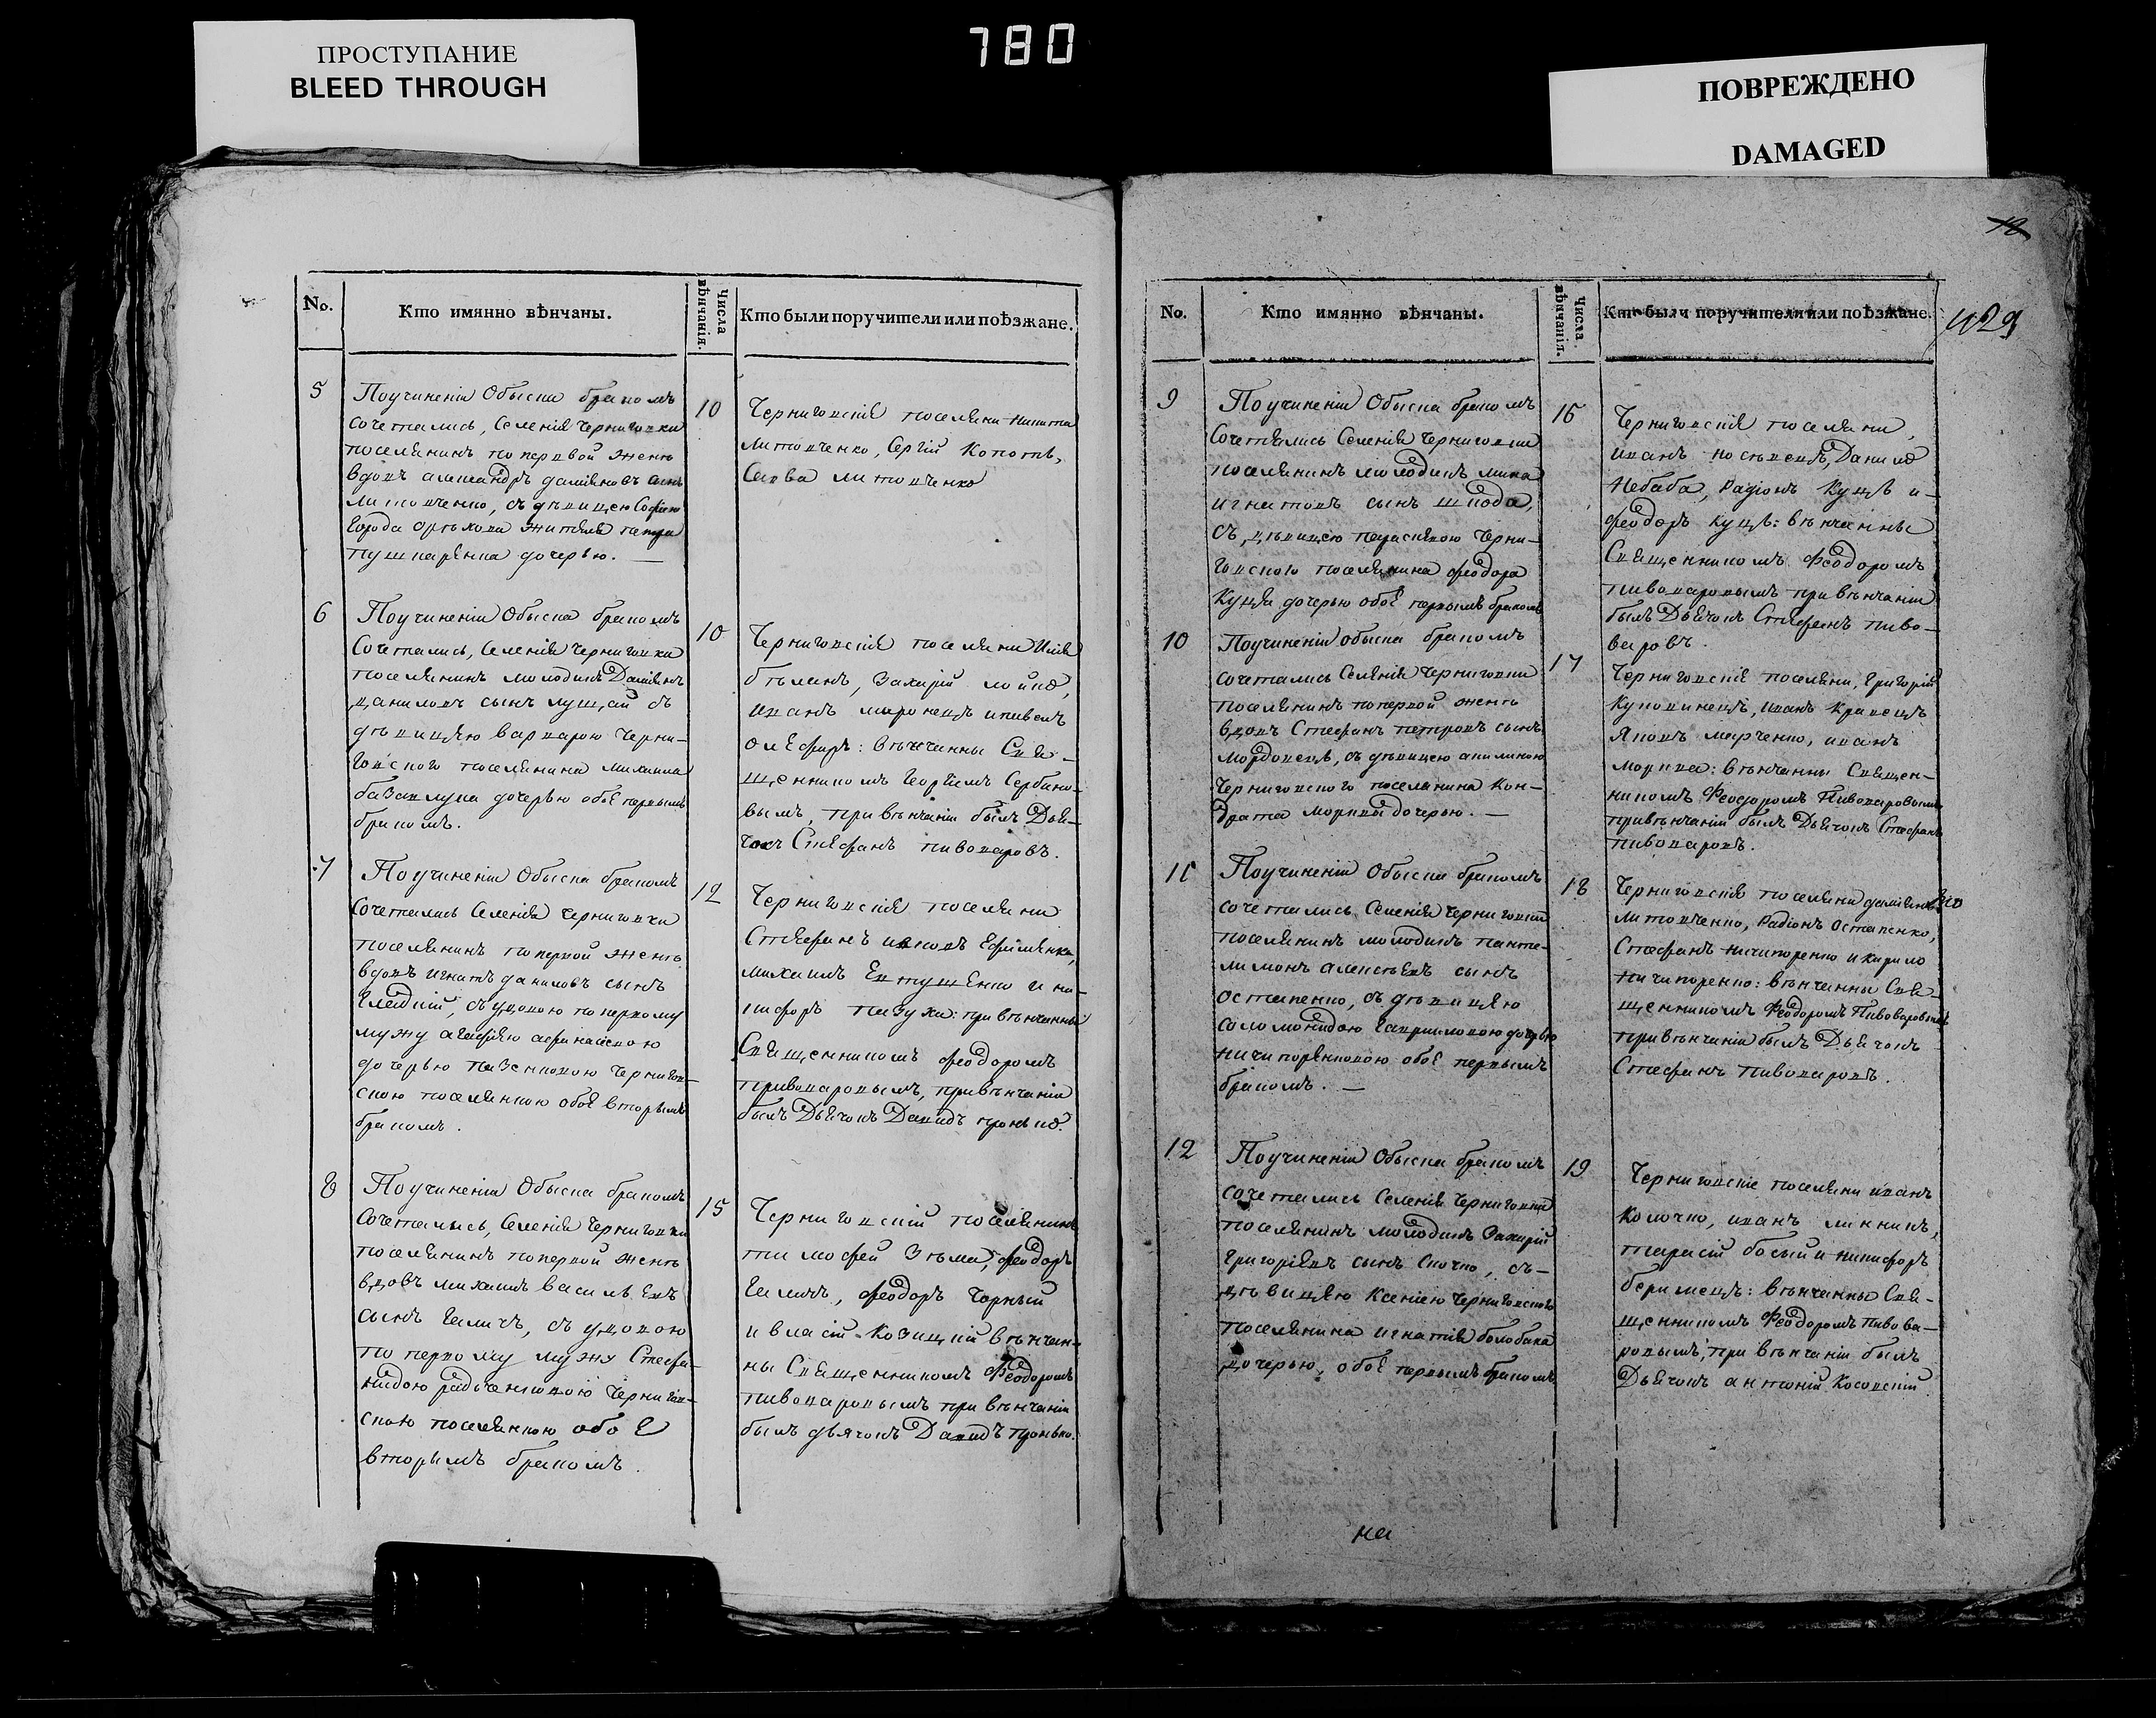 ПРОСТУПАНИЕ
BLEED THROUGH
780
ПОВРЕЖДЕНО
DAMAGED
No.
Кто имянно вѣнчаны.
Числа вѣнчанія.
Кто были поручители или поѣзжане.
5
Поучиненіи Обыска бракомъ
сочетались, Селенія Черниговки
поселянинъ по первой женѣ
вдовъ александръ даміановъ сынъ
литовченко, съ дѣвицею Софіею
города Орѣхова жителя петра
пушкаренка дочерью. —
10
Черниговскія поселяни никита
литовченко, Сергій Копоть,
Савва литовченко
6
Поучиненіи Обыска бракомъ
Сочетались, Селенія Черниговки
поселянинъ молодикъ Даміянъ
даниловъ сынъ лущай съ
дѣвицею варварою Черни-
говского поселянина михаила
базавлука дочерью обоє первымъ
бракомъ.
10
Черниговскія поселяни Илія
бѣланъ, Захарій лойко,
иванъ миронецъ ипавелъ
олефиръ: вѣнчанны Свя-
щенникомъ Георгіемъ Сербино-
вымъ, при вѣнчаніи былъ Дья-
чокъ Стефанъ пивоваровъ.
7
Поучиненіи Обыска бракомъ
Сочетались Селенія Черниговки
поселянинъ по первой женѣ
вдовъ игнатъ даниловъ сынъ
Гладкій, съ удовою по первому
мужу агафіею афанасіевою
дочерью пазенковою Чернигов-
скою поселянкою обоє вторымъ
бракомъ.
12
Черниговскія поселяни
Стефанъ ияковъ Ефименки,
михаилъ Евтушенко и ни-
кифоръ пазуха: при вѣнчанны
Священникомъ феодоромъ
пивоваровымъ, при вѣнчаніи
былъ Дьячокъ Давидъ пронько.
8
Поучиненіи Обыска бракомъ
Сочетались, Селенія Черниговки
поселянинъ по первой женѣ
вдовъ михаилъ васильевъ
сынъ Галичъ, съ удовою
по первому мужу Стефа-
нидою радченковою Черниго-
вскою поселянкою обоє
вторымъ бракомъ.
15
Черниговскій поселянинъ
тимофей Зѣма, феодоръ
Галичъ, феодоръ Чорный
и власій Козицкій вѣнчан-
ны Священникомъ Феодоромъ
пивоваровымъ при вѣнчаніи
былъ дьячокъ Давидъ пронько.
429
No.
Кто имянно вѣнчаны.
Числа вѣнчанія.
Кто были поручители или поѣзжане.
9
Поучиненіи Обыска бракомъ
Сочетались Селенія Черниговки
поселянинъ молодикъ мина
игнатовъ сынъ шкода,
съ дѣвицею параскевою Черни-
говского поселянина феодора
Куця дочерью обоє первымъ бракомъ
16
Черниговскія поселяни,
иванъ носовецъ, Данило
Небаба, Радіонъ Куцъ и-
феодоръ куцъ: вѣнчанны
Священникомъ Феодоромъ
пивоваровымъ при вѣнчаніи
былъ Дьячокъ Стефанъ пиво-
варовъ.
10
Поучиненіи обыска бракомъ
сочетались Селенія Черниговки
поселянинъ попервой женѣ
вдовъ Стефанъ петровъ сынъ
мордовецъ, съ дѣвицею акилиною
Черниговского поселянина Кон-
драта морквы дочерью. —
17
Черниговскіе поселяни, Григорій
Куповинецъ, иванъ Кравецъ
Яковъ марченко, иванъ
морква: вѣнчанны Священ-
никомъ Феодоромъ Пивоваровымъ
при вѣнчаніи былъ Дьячокъ Стефанъ
пивоваровъ.
11
Поучиненіи Обыска бракомъ
сочетались Селенія Черниговки
поселянинъ молодикъ панте-
лимонъ алексѣевъ сынъ
остапенко, съ дѣвицею
соломонидою гавриловою дочерью
ничипоренковою обоє первымъ
бракомъ. —
18
Черниговскія поселяни даміянъ
литовченко, Радіонъ Остапенко,
Стефанъ ничипоренко и кирило
ничипоренко: вѣнчанны Свя-
щенникомъ Феодоромъ Пивоваровымъ
при вѣнчаніи былъ Дьячокъ
Стефанъ пивоваровъ.
12
Поучиненіи Обыска бракомъ
сочетались Селенія Черниговки
поселянинъ молодикъ Захарій
Григоріевъ сынъ Скочко, съ-
дѣвицею Ксеніею Черниговского
поселянина игнатія болобана
дочерью, обоє первымъ бракомъ
19
Черниговскіе поселяни иванъ
Колочко, иванъ линникъ,
тарасій босый и никифоръ
беримецъ: вѣнчанны Свя-
щенникомъ Феодоромъ пивова-
ровымъ, при вѣнчаніи былъ
Дьячокъ антоній Косовскій.
на